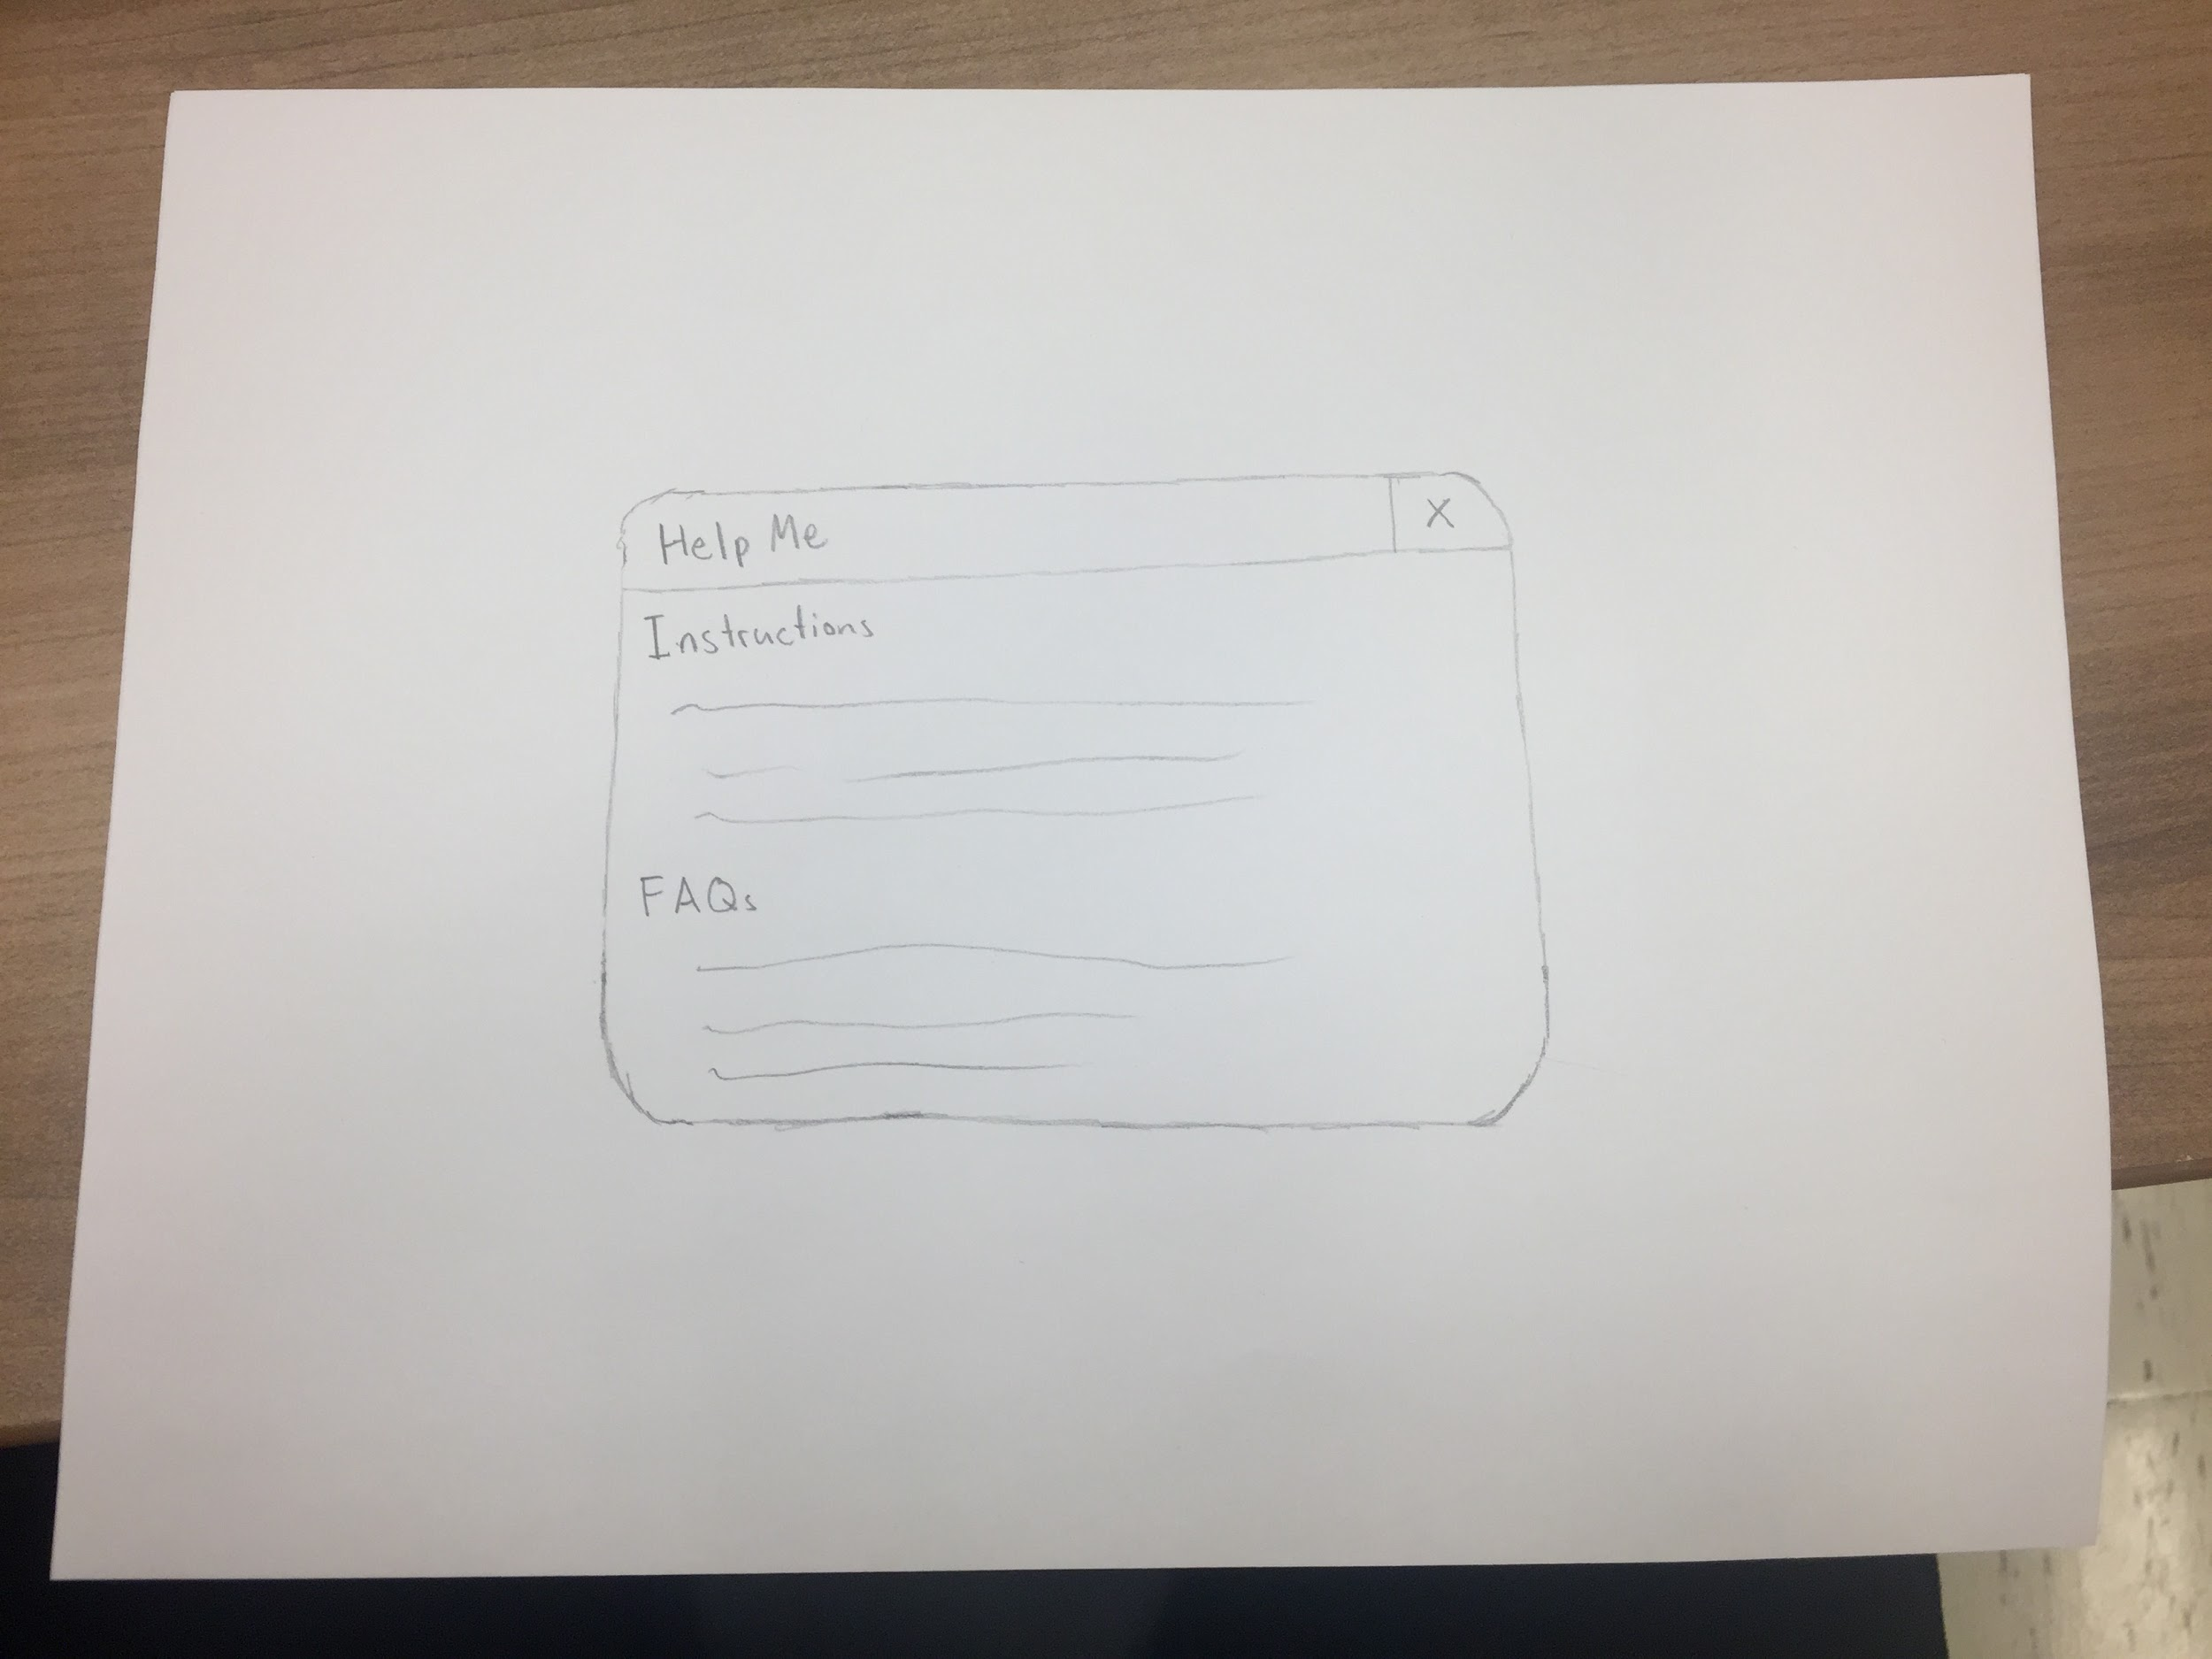 Help Me
X
Instructions
FAQs